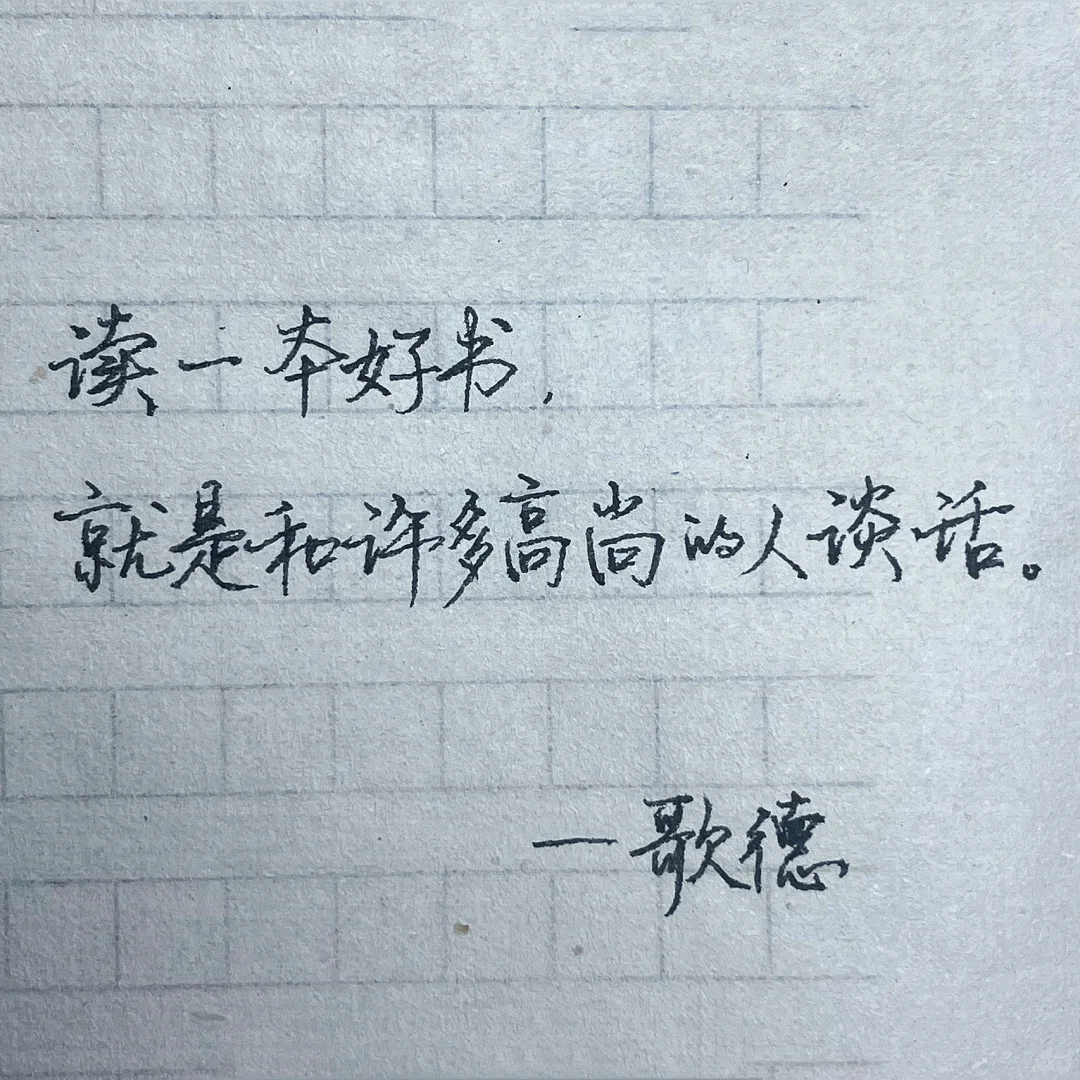 读一本好书，
就是和许多高尚的人谈话。
—歌德